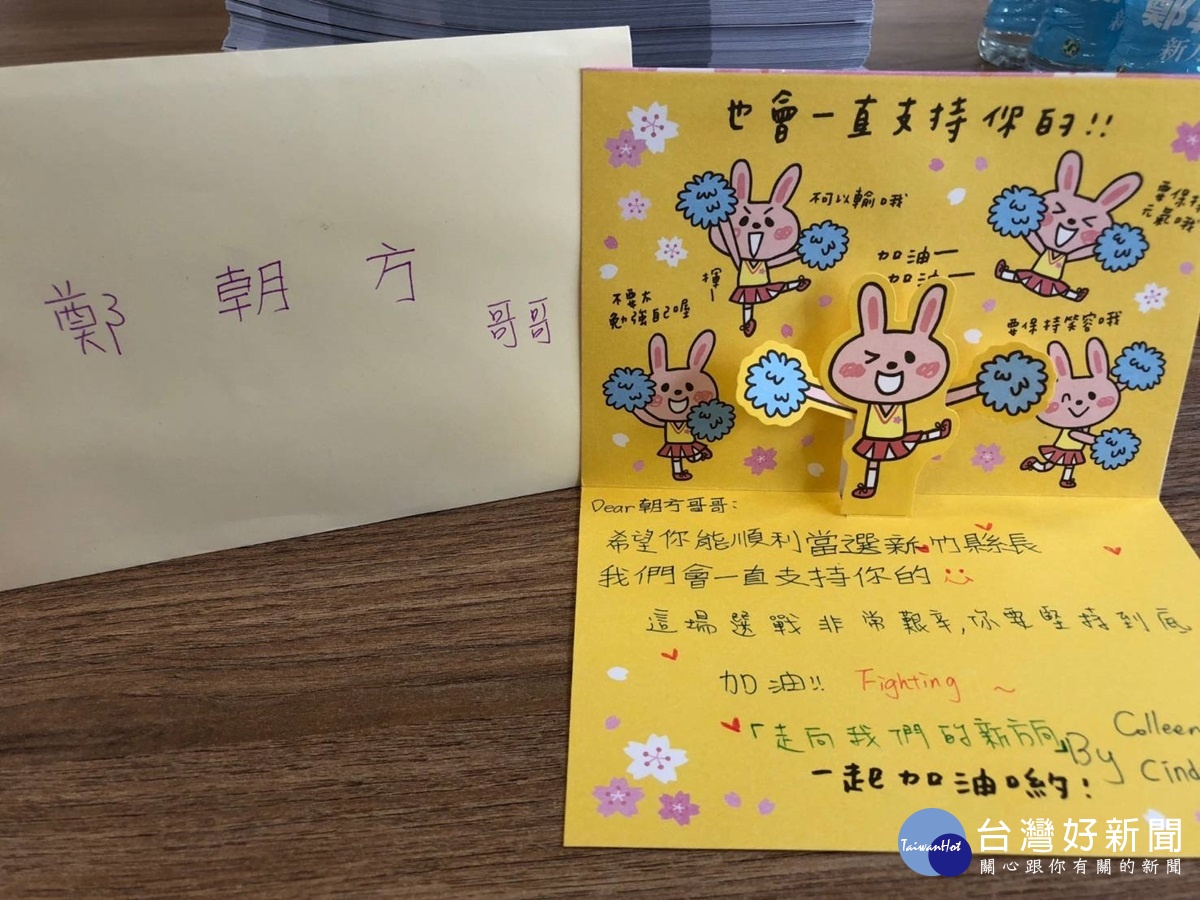 鄭朝方
哥哥
也會一直支持你的!!
不可以輸哦
加油一
加油一
揮一
不要太
勉強自己喔
要保持
元氣哦
要保持笑容哦
Dear 朝方哥哥:
希望你能順利當選新竹縣長
我們會一直支持你的
這場選戰非常艱辛,你要堅持到底
加油!! Fighting ~
「走向我們的新方向」
By Colleen
Cind
一起加油喲!
台灣好新聞
TaiwanHot
關心跟你有關的新聞